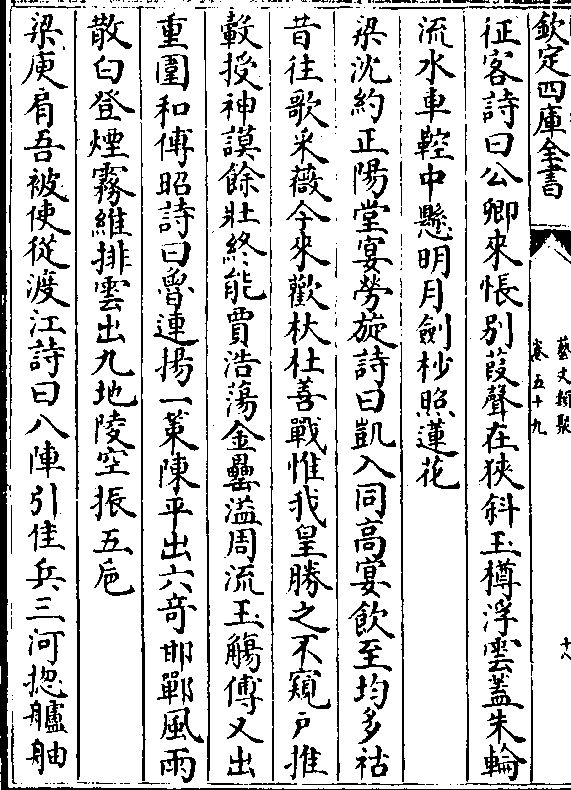 欽定四庫全書
藝文類聚
卷五十九
十八
征客詩曰公卿來悵别葭聲在狹斜玉樽浮雲蓋朱輪
流水車鞚中懸明月劍杪照蓮花
梁沈約正陽堂宴勞旋詩曰凱入同高宴飲至均多祜
昔往歌采薇今來歡杕杜善戰惟我皇勝之不窺戶推
轂授神謨餘壯終能賈浩蕩金罍溢周流玉觴傅又出
重圍和傅昭詩曰魯連揚一策陳平出六竒邯鄲風雨
散白登煙霧維排雲出九地陵空振五巵
梁庾肩吾被使從渡江詩曰八陣引佳兵三河揔艫舳